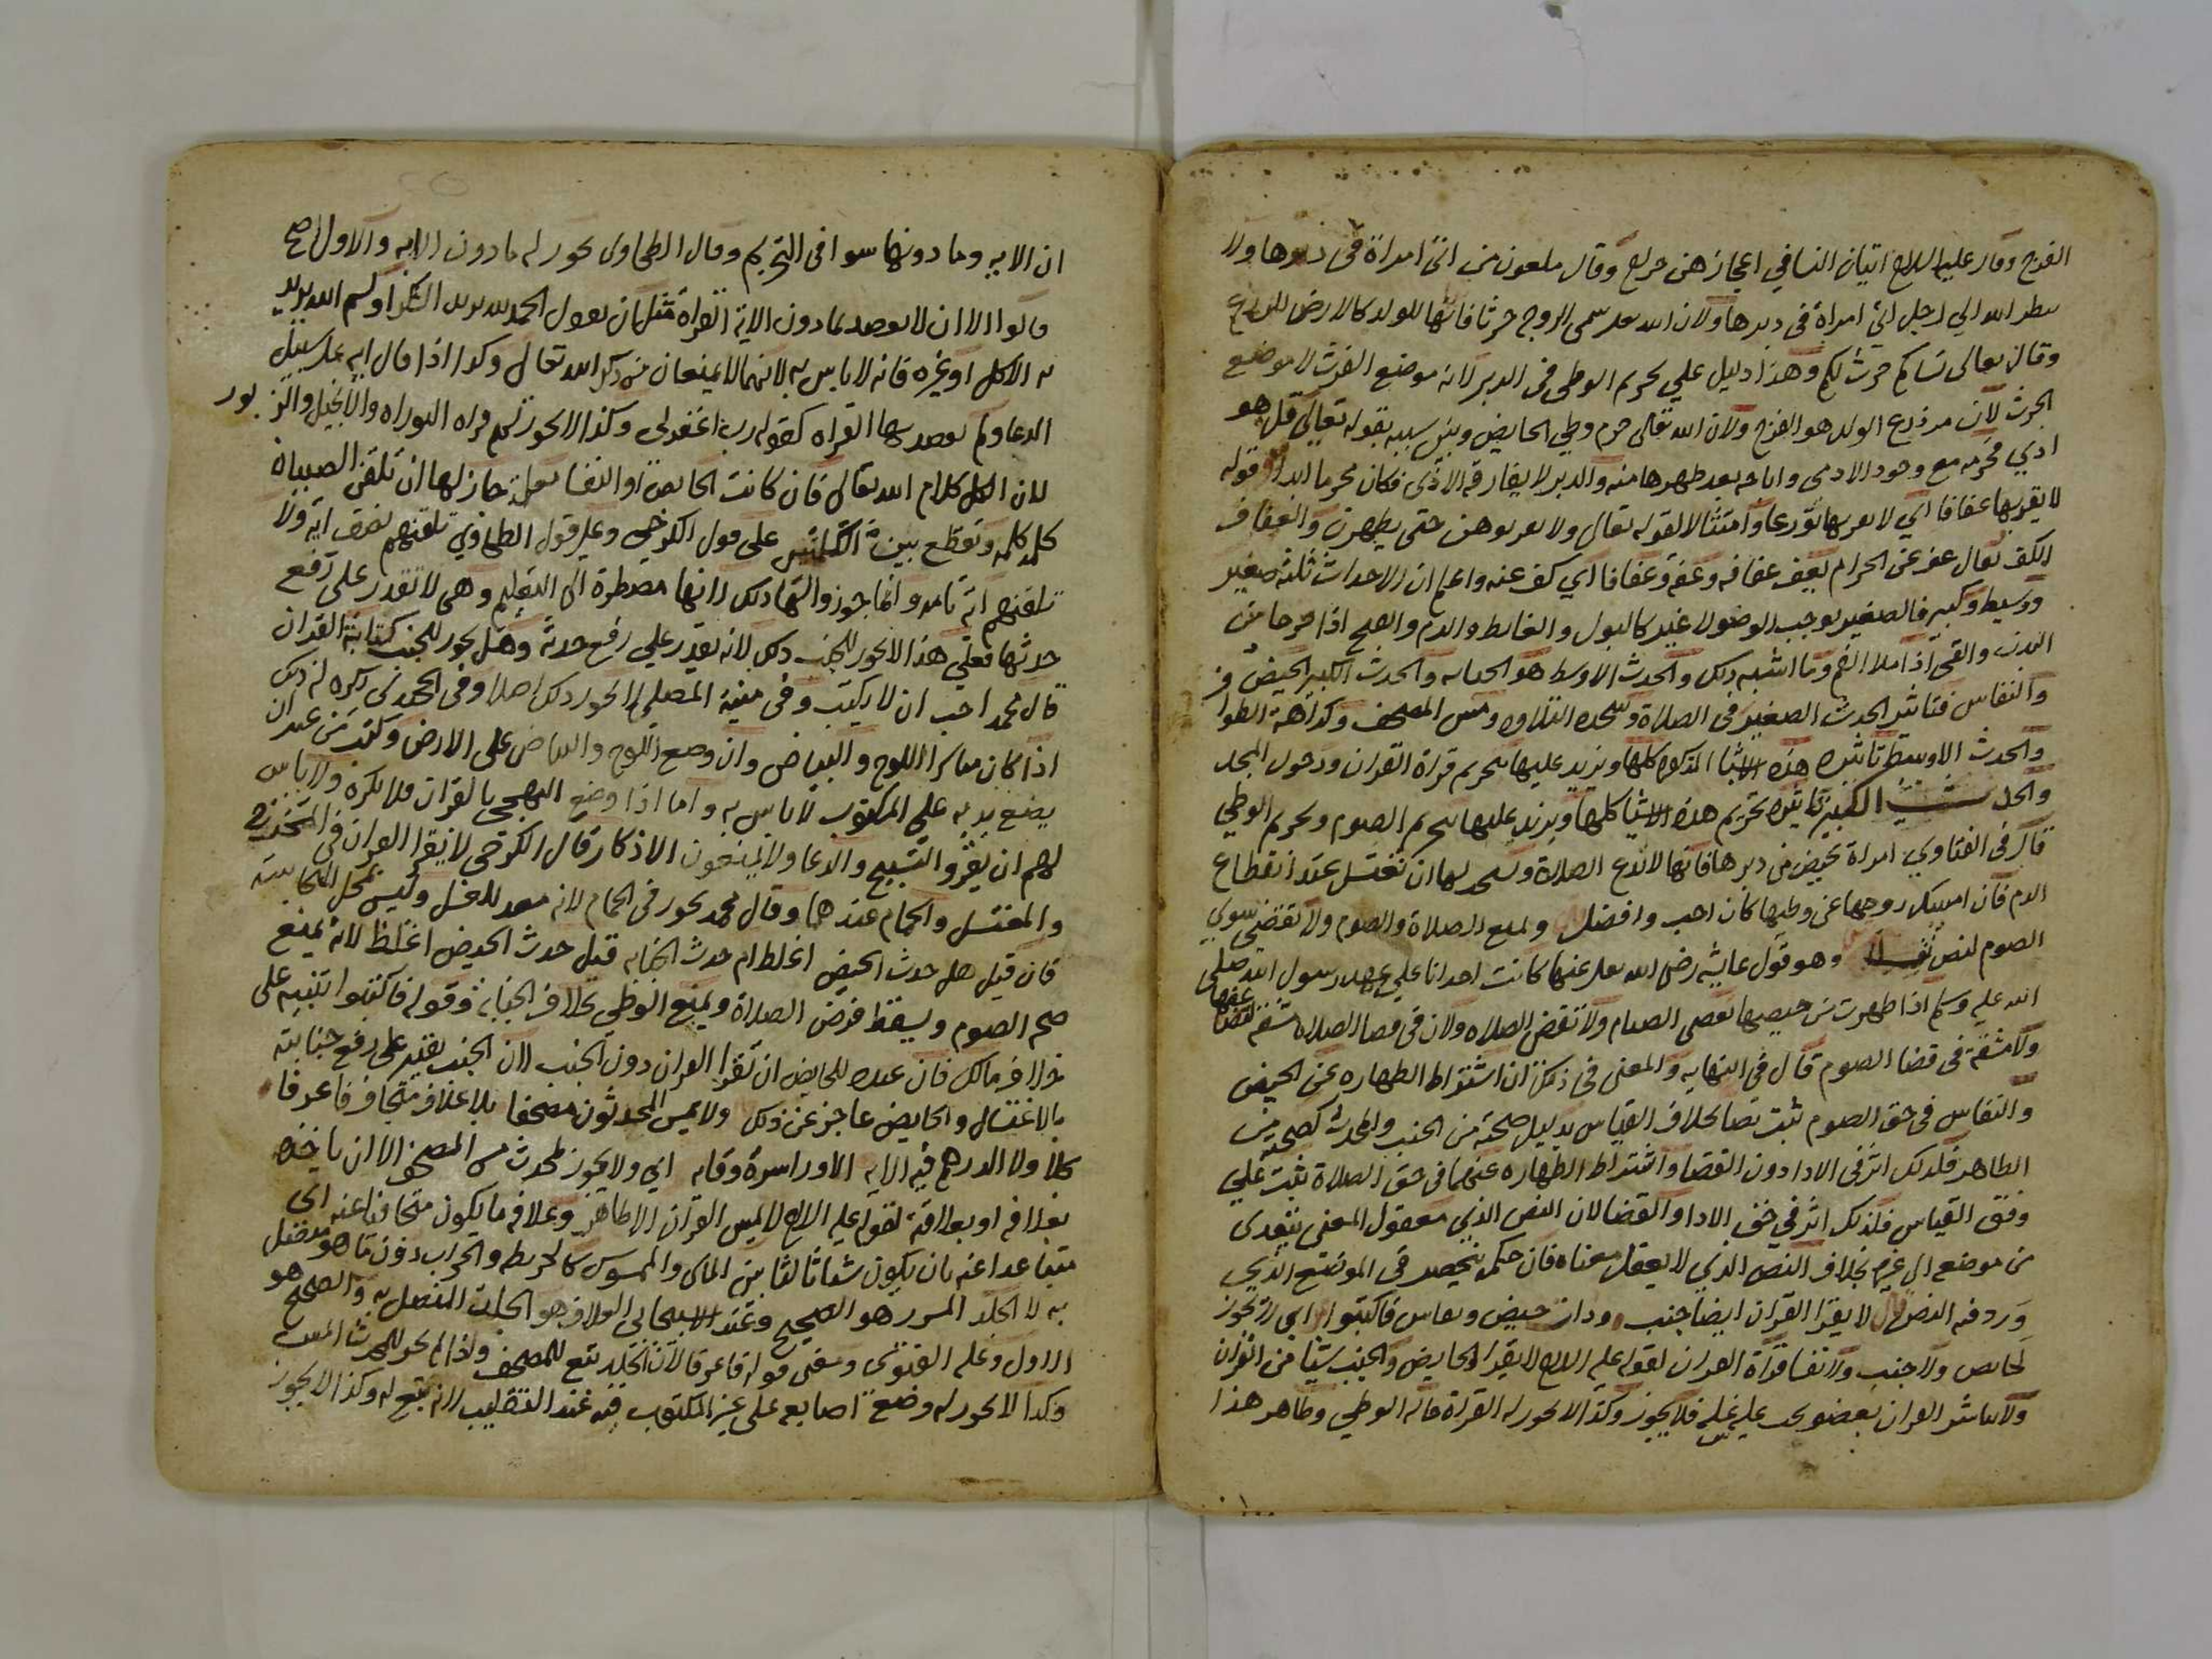 الفرج وقال عليه السلام اتيان النسا في اعجازهن حرام وقال ملعون من اتى امراة في دبرها ولا
ينظر الله الي رجل اتي امراة في دبرها ولان الله تعالى سمى الزوج حرثا فانها للولد كالارض للزرع
وقال تعالى نساكم حرث لكم وهذا دليل علي تحريم الوطي في الدبر لانه موضع الفرث لا موضع
الحرث لان مزدرع الولد هو الفرج ولان الله تعالى حرم وطي الحايض وبين سببه بقوله تعالى قل هو
اذي فحرمه مع وجود الاذى واباحه بعد طهرها منه والدبر لا يفارقه الاذى فكان محرما ابدا قوله
لا يقربها عفافا اي لا يقربها تورعا وامتثالا لقوله تعالى ولا تقربوهن حتى يطهرن والعفاف
الكف يقال عف عن الحرام يعف عفافه وعفة وعفافا اي كف عنه واعلم ان الاحداث ثلثة صغير
ووسيط وكبير فالصغير يوجب الوضو لا غير كالبول والغايط والدم والصح اذا خرجا من
البدن والقي اذا ملا الفم وما اشبه ذلك والحدث الاوسط هو الجنابه والحدث الكبير الحيض
والنفاس فتاثير الحدث الصغير في الصلاة وسجده التلاوه ومس المصحف وكراهة الطواف
والحدث الاوسط تاثيره هذه الاشيا المذكوره كلها ويزيد عليها تحريم قراة القران ودخول المسجد
والحدث الكبير تاثيره تحريم هذه الاشيا كلها ويزيد عليها تحريم الصوم وتحريم الوطي
قال في الفتاوي امراة تحيض من دبرها فانها لا تدع الصلاة ويستحب لها ان تغتسل عند انقطاع
الدم فان امسك زوجها عن وطيها كان احب وافضل ويمنع الصلاة والصوم ولا تقضي سوي
الصوم لنص نقلا وهو قول عايشه رضي الله تعالى عنها كانت احدانا علي عهد رسول الله صلى
الله عليه وسلم اذا طهرت من حيضها تقضي الصيام ولا تقضي الصلاه ولان في قضا الصلاه مشقه لتضاعفها
ولا مشقة في قضا الصوم قال في النهايه والمعنى في ذلك ان اشتراط الطهاره عن الحيض
والنفاس في حق الصوم ثبت نصا بخلاف القياس بدليل صحته من الجنب والمحدث كصحته من
الطاهر فلذلك اثر في الادا دون القضا واشتراط الطهاره عنهما في حق الصلاة ثبت علي
وفق القياس فلذلك اثر في حق الادا والقضا لان النص الذي معقول المعنى يتعدى
من موضعه الى غيره بخلاف النص الذي لا يعقل معناه فان حكمه ينحصر في الموضع الذي
ورد فيه النص قال لا يقرا القران ايضا جنب وذات حيض ونفاس فاكتبوا اي لا تجوز
لحايض ولا جنب ولا نفسا قراة القران لقوله عليه السلام لا يقرا الحايض والجنب شيئا من القران
ولا يباشر القران بعضو يجب عليه غسله فلا يجوز وكذا لا يجوز له القراة حالة الوطي وظاهر هذا
ان الايه وما دونها سوا في التحريم وقال الطحاوي يجوز له ما دون الايه والاول اصح
قالوا الا ان لا يقصد بما دون الاية القراة مثل ان يقول الحمد لله يريد الشكر او بسم الله يريد
به الاكل او غيره فانه لا باس به لانهما لا يمنعان من ذكر الله تعالى وكذا اذا قال ايه علي سبيل
الدعا ولم يقصد بها القراه كقوله رب اغفر لي وكذا لا يجوز لهم قراه التوراه والانجيل والزبور
لان الكل كلام الله تعالى فان كانت الحايض او النفسا معلمة جاز لها ان تلقن الصبيان
كلمه كلمه وتقطع بين الكلمتين على قول الكرخي وعلي قول الطحاوي تلقنهم نصف اية ولا
تلقنهم اية تامه وانما جوز والها ذلك لانها مضطرة الى التعليم وهي لا تقدر على رفع
حدثها فعلي هذا لا يجوز للجنب ذلك لانه يقدر علي رفع حدثه وهل يجوز للجنب كتابة القران
قال محمد احب ان لا يكتب وفي منية المصلي لا يجوز ذلك اصلا وفي الخجندي يكره له ذلك
اذا كان مباشرا اللوح والبياض وان وضع اللوح والبياض على الارض وكتب من غير ان
يضع يده على المكتوب لا باس به واما اذا وضع التهجي بالقران فلا يكره ولا باس
لهم ان يقروا التسبيح والدعا ولا يمنعون الاذكار قال الكرخي لا يقرا القران في المخرج
والمغتسل والحمام عندهما وقال محمد يجوز في الحمام لانه معد للغسل وليس بمحل النجاسة
فان قيل هل حدث الحيض اغلظ ام حدث الجنابه قيل حدث الحيض اغلظ لانه يمنع
صحة الصوم ويسقط فرض الصلاة ويمنع الوطي بخلاف الجنابة وقوله فاكتبوا تنبيه على
خلاف مالك فان عنده للحايض ان تقرا القران دون الجنب لان الجنب يقدر على رفع جنابته
بالاغتسال والحايض عاجز عن ذلك ولا يمس المحدثون مصحفا بلا غلاف متجاف فاعرفا
كلا ولا الدرهم فيه الايه الاوراسرة وقايه اي ولا يجوز لمحدث مس المصحف الا ان ياخذه
بغلافه او بعلاقة لقوله عليه السلام لا يمس القران الا طاهر وغلافه ما يكون متجافيا عنه اي
متباعدا عنه بان يكون شيئا ثالثا بين الماس والممسوس كالخريطه والجراب دون ما هو متصل
به لا الجلد المسرز هو الصحيح وعند الاسبيجابي الغلاف هو الجلد المتصل به والصحيح هو
الاول وعليه الفتوى ومعنى قوله فاعرفا لان الجلد تبع للمصحف واذا لم يجز للمحدث المس
وكذا لا يجوز له وضع اصابعه على غير المكتوب فيه عند التقليب لانه تبع له وكذا لا يجوز